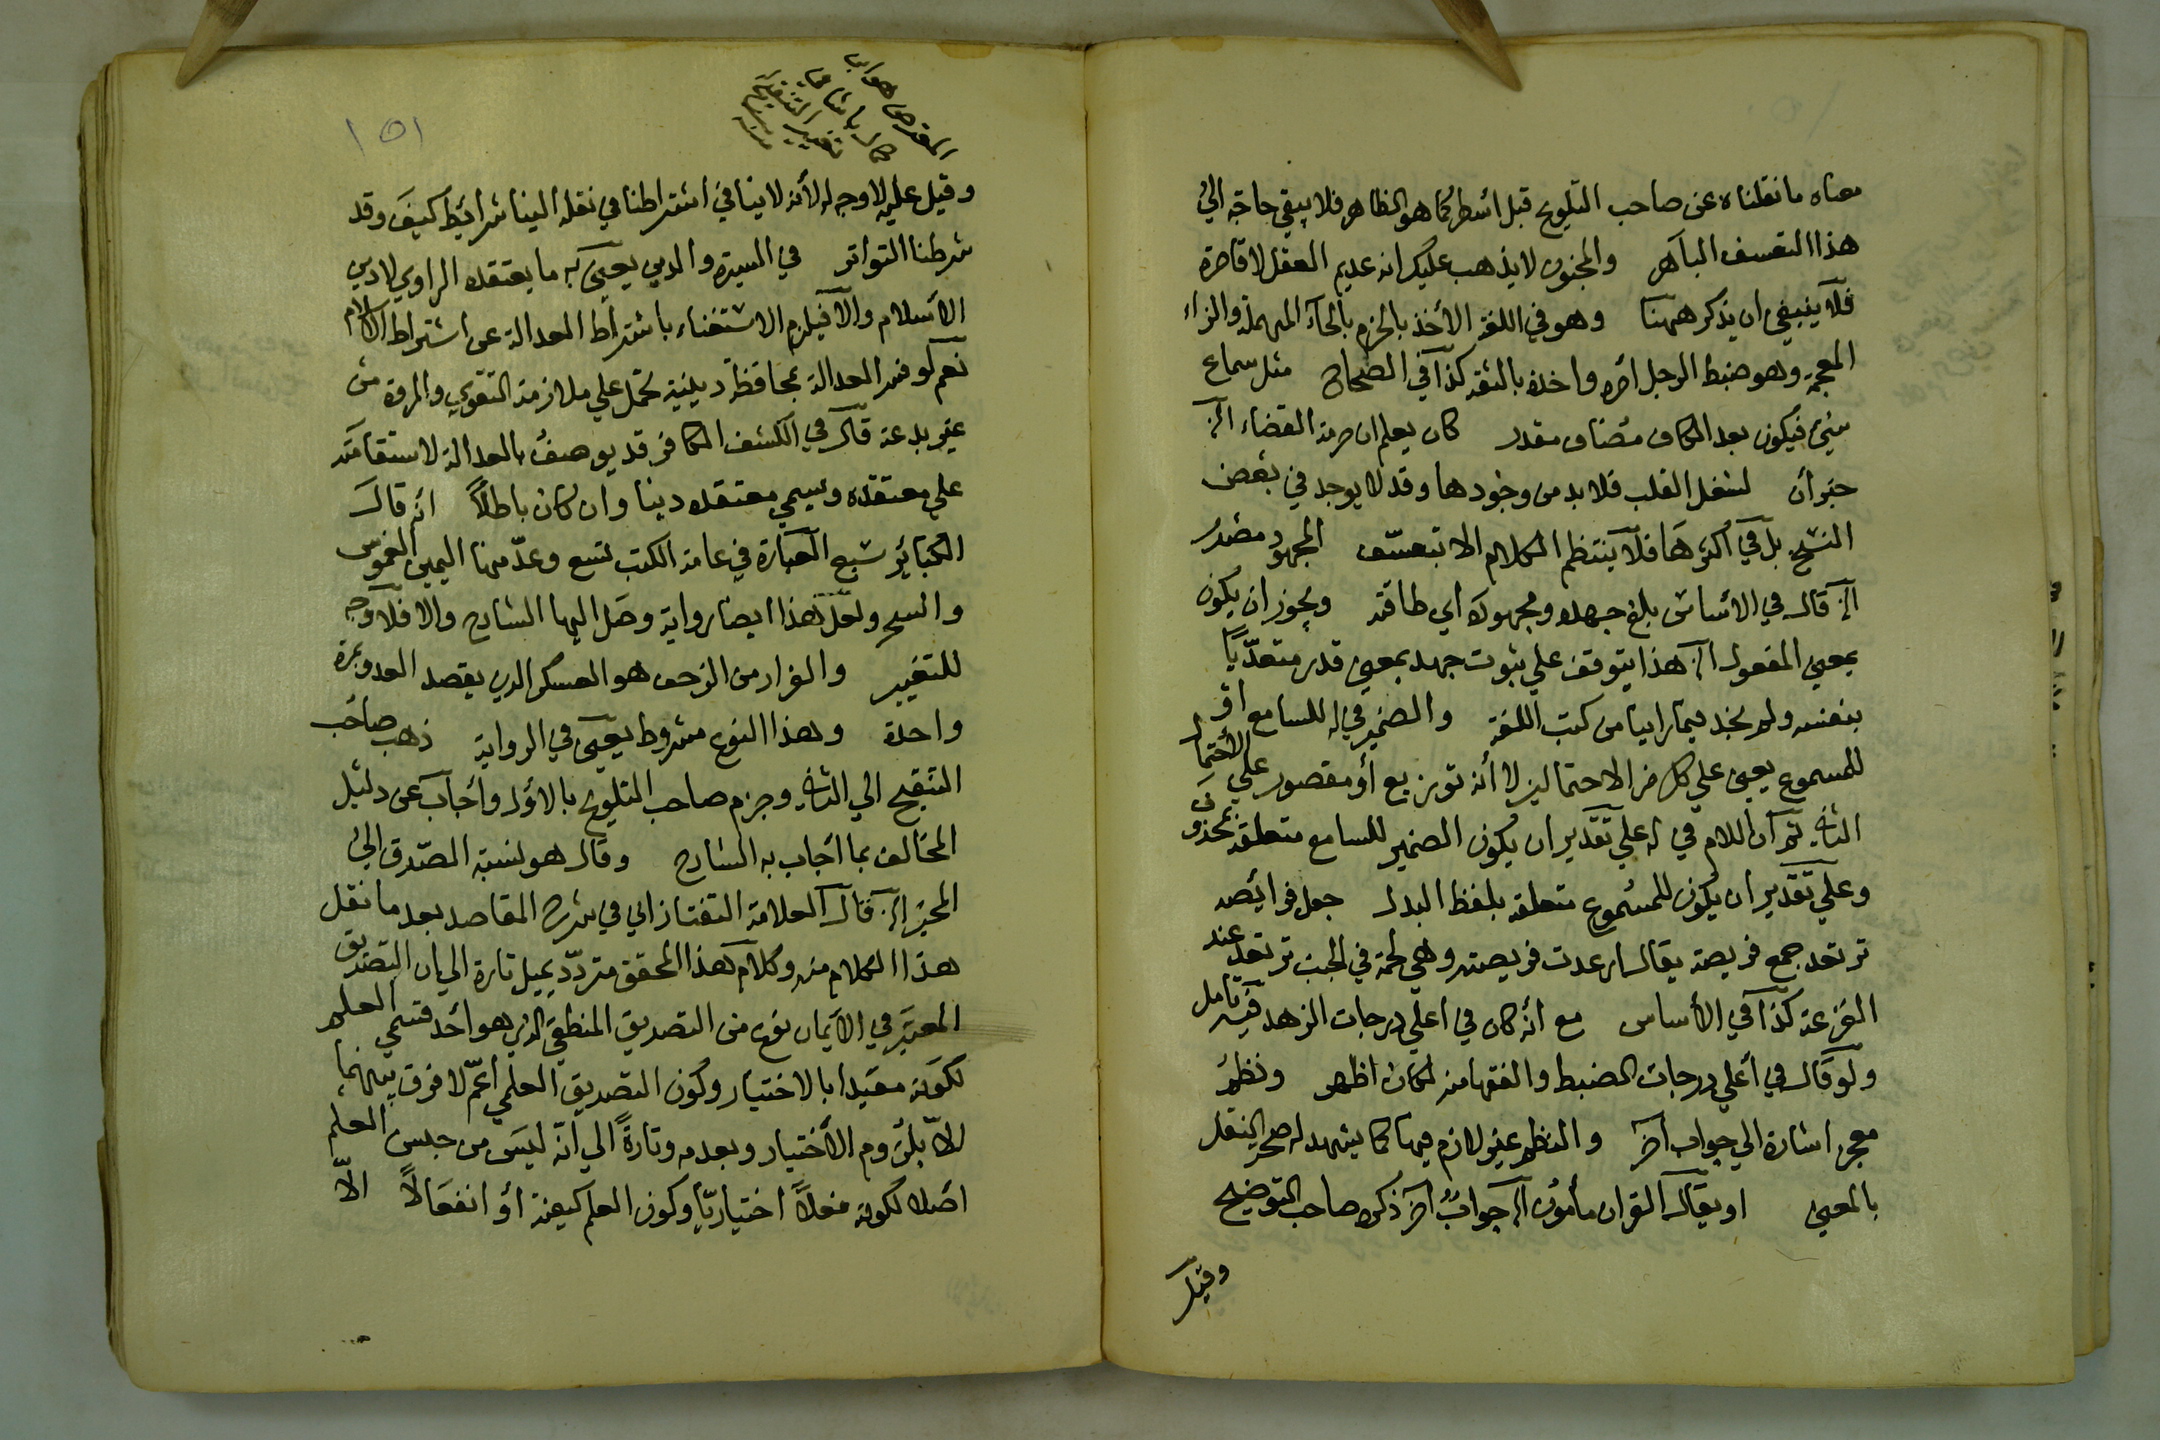 معناه ما نقلناه عن صاحب التلويح قبل اسطر كما هو الظاهر فلا يبقي حاجة الي
هذا التعسف الباهر والمجنون لا يذهب عليك انه عديم العقل لا قاصرة
فلا ينبغي ان يذكر ههنا وهو في اللغة الأخذ بالحزم بالحاء المهملة والزاء
المعجمة وهو ضبط الرجل امره واخذه بالثقة كذا في الصحاح مثل سماع
شيئ فيكون بعد الكاف مضاف مقدر كان يعلم ان حرمة القضاء الخ
خبر أن لشغل القلب فلا بد من وجودها وقد لا يوجد في بعض
النسخ بل في اكثرها فلا ينتظم الكلام الا بتعسف المجهود مصدر
الخ قال في الاساس بلغ جهده ومجهوده اي طاقته ويجوز ان يكون
بمعني المفعول الخ هذا يتوقف علي ثبوت جهد بمعني قدر متعديا
بنفسه ولم نجد فيما راينا من كتب اللغة والضمير في له للسامع او
للمسموع يعني علي كل من الاحتمالين لا أنه توزيع أو مقصور علي الاحتمال
الثاني ثم ان اللام في له علي تقدير ان يكون الضمير للسامع متعلقة بمحذوف
وعلي تقدير ان يكون للمسموع متعلقه بلفظ البدل جعل فرائصه
ترتعد جمع فريصة يقال ارعدت فريصته وهي لحمة في الجنب ترتعد عند
الفزعة كذا في الأساس مع أنه كان في اعلي درجات الزهد فيه تامل
ولو قال في أعلي درجات الضبط والفقاهة لكان اظهر ونظم
معجز اشارة الي جواب آخر والنظم غير لازم فيها كما يشهد له صحة النقل
بالمعني او يقال القران مأمون الخ جواب آخر ذكره صاحب التوضيح
وقيل
١٥١
وقيل عليه لا وجه له لأنه لا ينافي اشتراطنا في نقله الينا شرائط كيف وقد
شرطنا التواتر في السيرة والدين يعني به ما يعتقده الراوي لا دين
الاسلام والا فيلزم الاستغناء باشتراط العدالة عن اشتراط الاسلام
نعم لو فسر العدالة بمحافظة دينية تحمل علي ملازمة التقوي والمروة من
غير بدعة قال في الكشف الكافر قد يوصف بالعدالة لاستقامته
علي معتقده ويسمي معتقده دينا وان كان باطلا انه قال
الكبائر سبع العبارة في عامة الكتب تسع وعد منها اليمين الغموس
والسحر ولعل هذا ايضا رواية وصل اليها الشارح والا فلا وجه
للتغيير والفرار من الزحف هو العسكر الذي يقصد العدو بمرة
واحدة وهذا النوع مشروط يعني في الرواية ذهب صاحب
التنقيح الي الثاني وجزم صاحب التلويح بالاول واجاب عن دليل
المخالف بما أجاب به الشارح وقال هو نسبة الصدق الي
المخبر الخ قال العلامة التفتازاني في شرح المقاصد بعد ما نقل
هذا الكلام منه وكلام هذا المحقق متردد يميل تارة الي ان التصديق
المعتبر في الايمان نوع من التصديق المنطقي الذي هو أحد قسمي العلم
لكونه مقيدا بالاختيار وكون التصديق العلمي أعم لا فرق بينهما
الا بلزوم الاختيار وبعدمه وتارة الي انه ليس من جنس العلم
اصلا لكونه فعلا اختياريا وكون العلم كيفية أو انفعالا الا